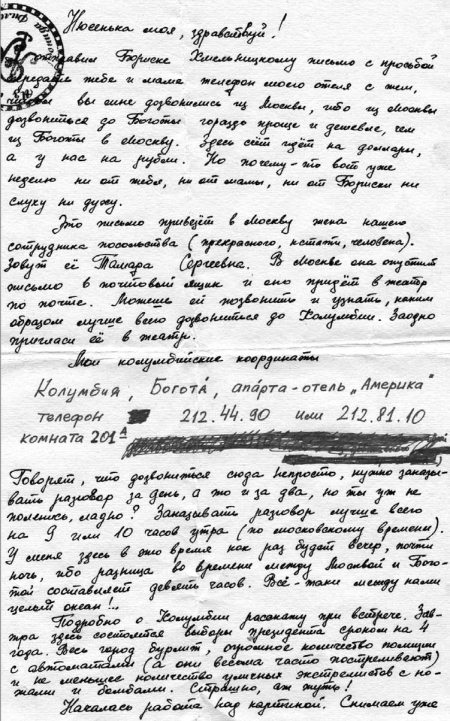 Нюсенька моя, здравствуй!
отправил Бориске Хмельницкому письмо с просьбой
передать тебе и маме телефон моего отеля с тем,
чтобы вы мне дозвонились из Москвы, ибо из Москвы
дозвониться до Боготы гораздо проще и дешевле, чем
из Боготы в Москву. Здесь счёт идёт на доллары,
а у нас на рубли. Но почему-то вот уже
неделю ни от тебя, ни от мамы, ни от Бориски ни
слуху ни духу.
Это письмо привезёт в Москву жена нашего
сотрудника посольства (прекрасного, кстати, человека).
Зовут её Тамара Сергеевна. В Москве она опустит
письмо в почтовый ящик и оно придёт в театр
по почте. Можешь ей позвонить и узнать, каким
образом лучше всего дозвониться до Колумбии. Заодно
пригласи её в театр.
Мои колумбийские координаты
Колумбия, Богота́, апа́рта-отель „Америка"
телефон 212.44.90 или 212.81.10
комната 201А
Говорят, что дозвониться сюда непросто, нужно заказы-
вать разговор за день, а то и за два, но ты уж не
поленись, ладно? Заказывать разговор лучше всего
на 9 или 10 часов утра (по московскому времени).
У меня здесь в это время как раз будет вечер, почти
ночь, ибо разница во времени между Москвой и Бого-
той составляет девять часов. Всё-таки между нами
целый океан!..
Подробно о Колумбии расскажу при встрече. Зав-
тра здесь состоятся выборы президента сроком на 4
года. Весь город бурлит, огромное количество полиции
с автоматами (а они весьма часто постреливают)
и не меньшее количество уличных экстремистов с но-
жами и бомбами. Страшно, аж жуть!
Началась работа над картиной. Снимаем уже